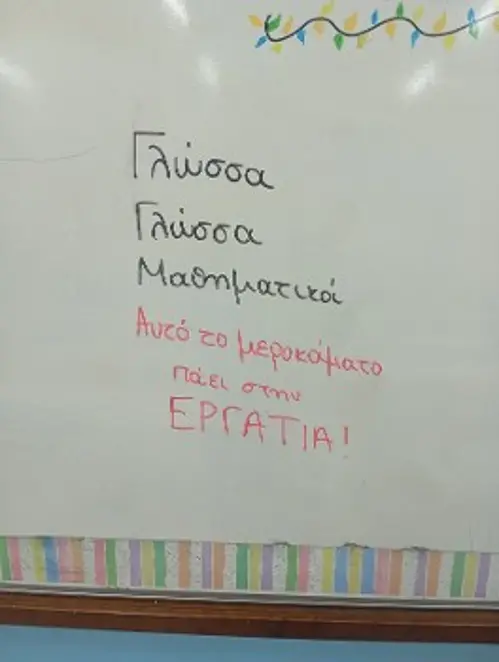 Γλώσσα
Γλώσσα
Μαθηματικά
Αυτό το μεροκάματο
πάει στην
ΕΡΓΑΤΙΑ!